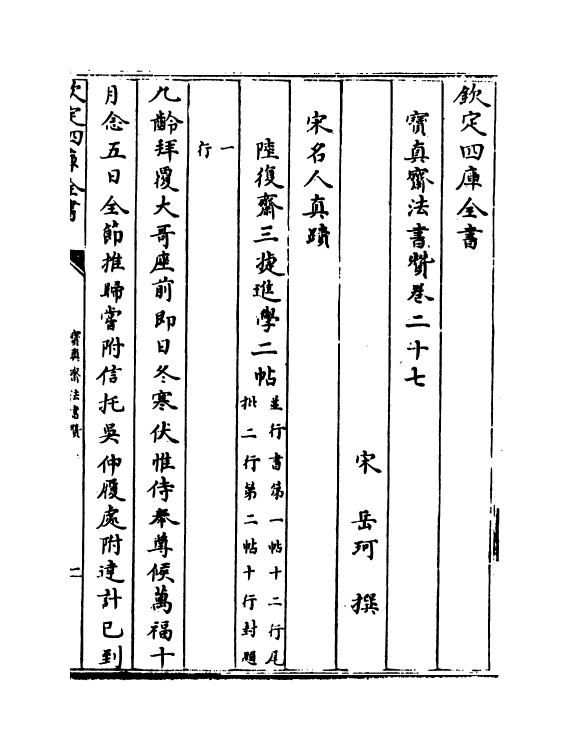 欽定四庫全書
寳真齋法書贊卷二十七
宋　岳珂　撰
宋名人真蹟
陸復齋三捷進學二帖
並行書第一帖十二行尾
批二行第二帖十行封題
一
行
九齡拜覆大哥座前即日冬寒伏惟侍奉尊候萬福十
月念五日全節推歸嘗附信托吳仲履處附達計已到
欽定四庫全書
寳真齋法書贊